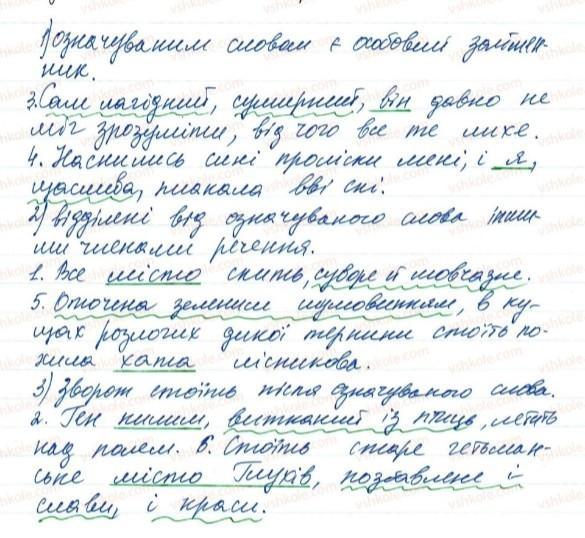 1) означуваним словом є особовий займен-
ник.
3. Сам лагідний, сумирний, він давно не
міг зрозуміти, від чого все те лихе.
4. Наснились сині проліски мені, і я,
щаслива, плакала вві сні.
2) відділені від означуваного слова інши-
ми членами речення.
1. Все місто спить, суворе й мовчазне.
5. Оточена зеленим шумовинням, в ку-
щах розлогих дикої тернини стоїть по-
хила хата лісникова.
3) Зворот стоїть після означуваного слова.
2. Ген килим, витканий із птиць, летить
над полем. 6. Стоїть старе гетьман-
ське місто Глухів, позбавлене і
слави, і краси.